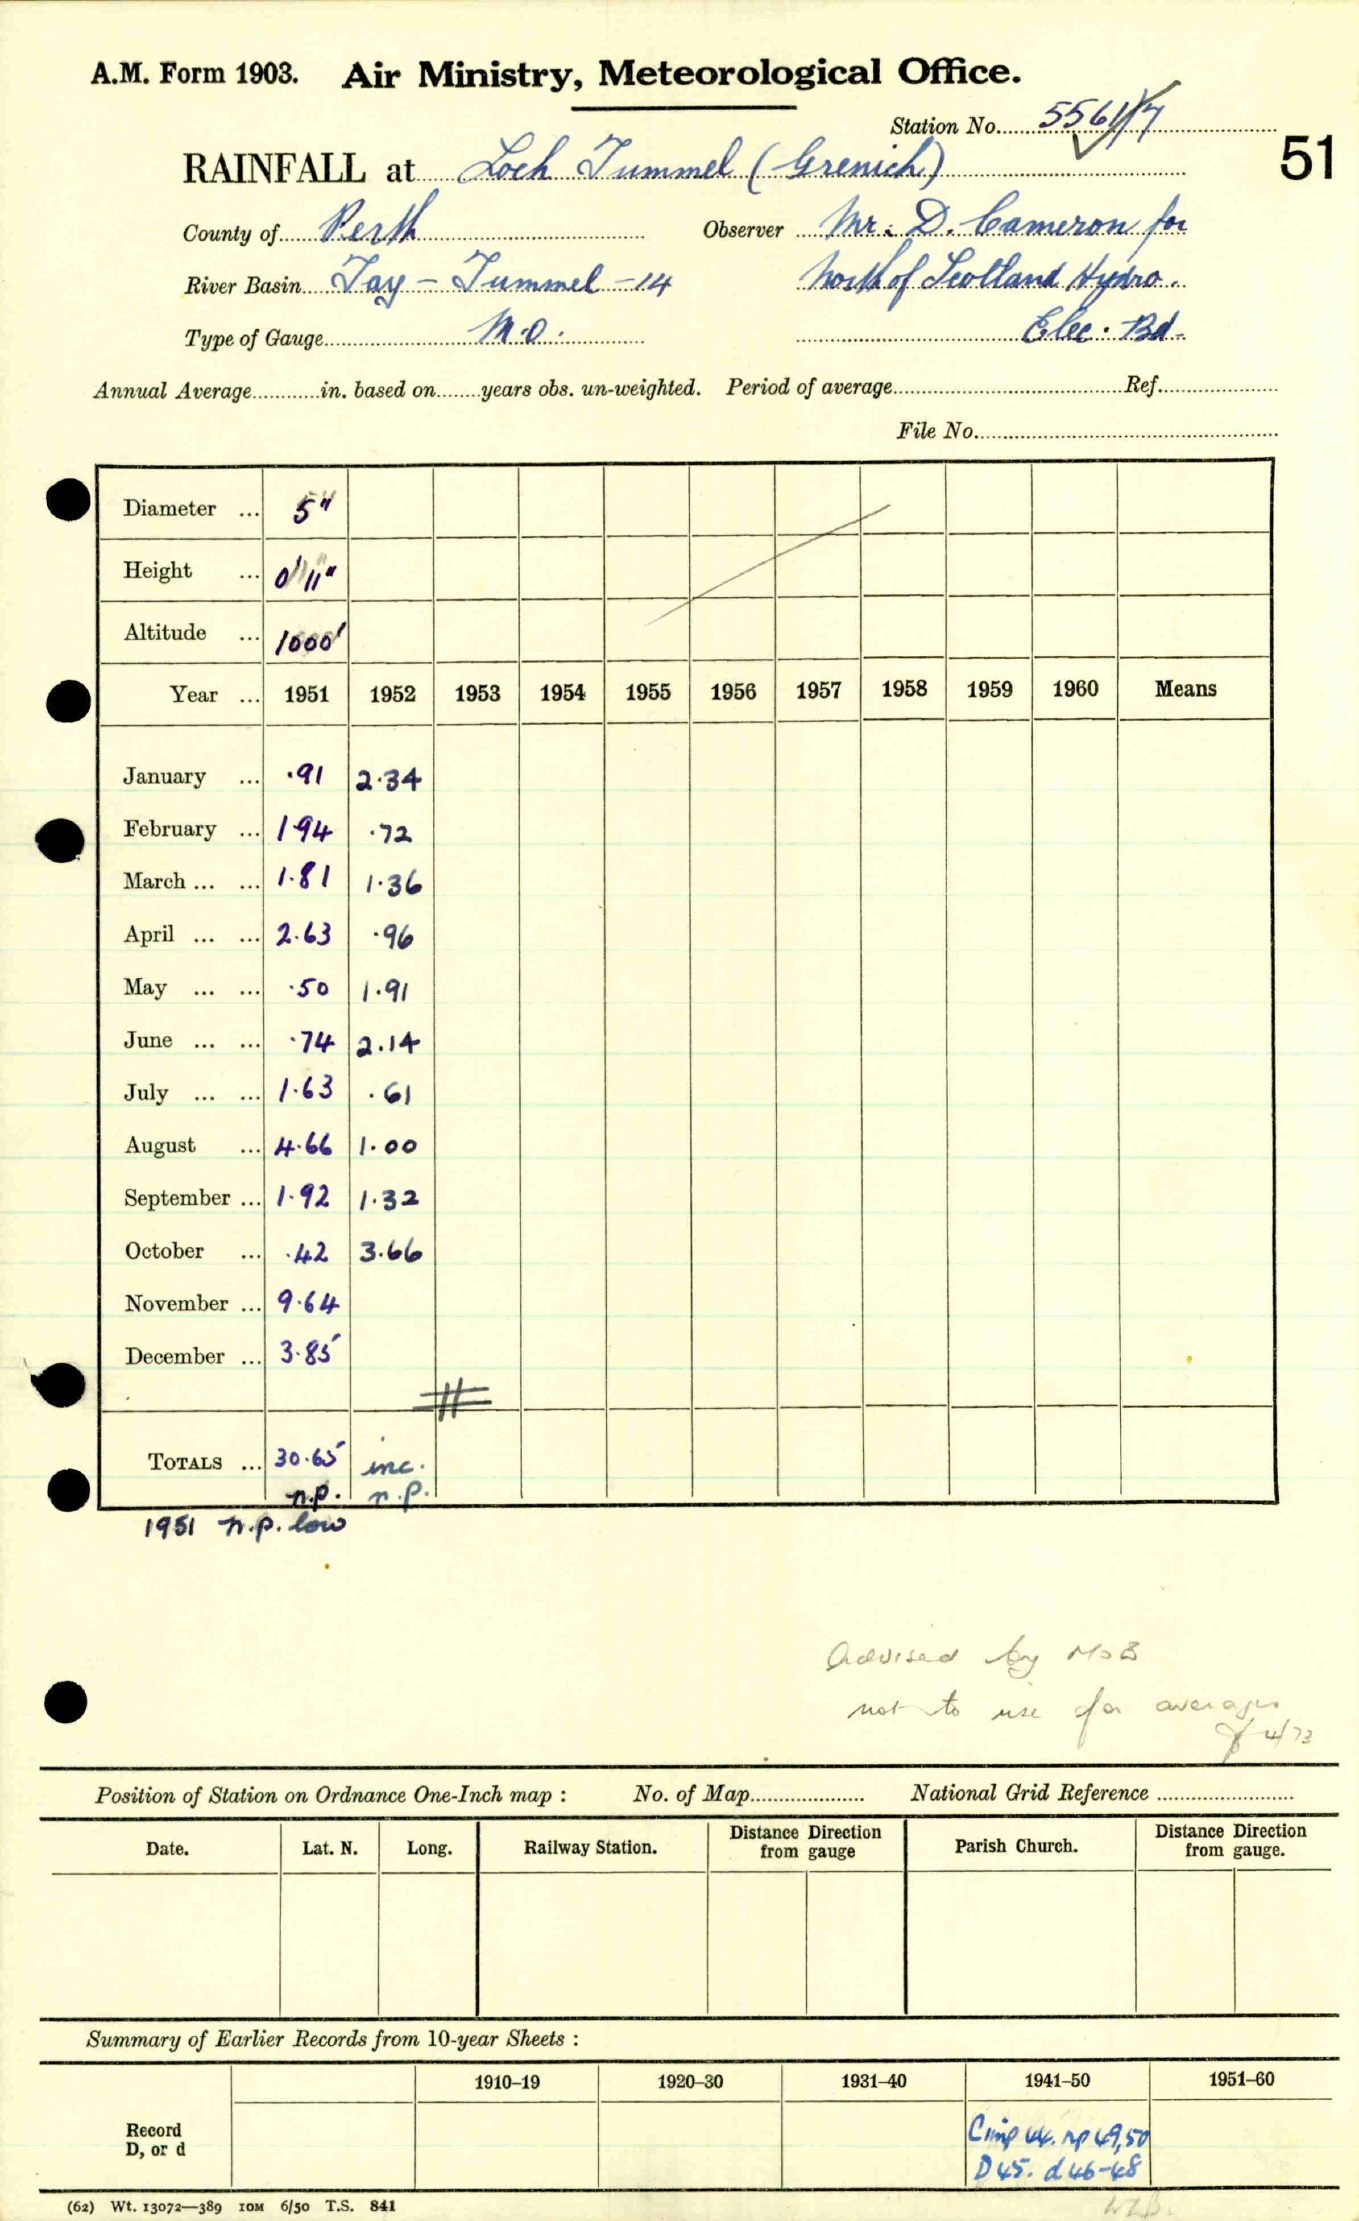 A.M. Form 1903. Air Ministry, Meteorological Office.
Station No. 5561/7
51
RAINFALL at Loch Tummel (Grenich)
County of Perth Observer Mr. D. Cameron for
River Basin Tay – Tummel – 14 North of Scotland Hydro.
Type of Gauge M.O. Elec. Bd.
Annual Average in. based on years obs. un-weighted. Period of average Ref.
File No.
Diameter ... 5"
Height ... 0' 11"
Altitude ... 1000'
Year ... 1951 1952 1953 1954 1955 1956 1957 1958 1959 1960 Means
January ... ·91 2·34
February ... 1·94 ·72
March ... ... 1·81 1·36
April ... ... 2·63 ·96
May ... ... ·50 1·91
June ... ... ·74 2·14
July ... ... 1·63 ·61
August ... 4·66 1·00
September ... 1·92 1·32
October ... ·42 3·66
November ... 9·64
December ... 3·85
TOTALS ... 30·65 inc.
n.p. n.p.
1951 n.p. low
Advised by MoB
not to use for averages
4/73
Position of Station on Ordnance One-Inch map : No. of Map National Grid Reference
Date. Lat. N. Long. Railway Station. Distance from gauge Direction Parish Church. Distance from gauge. Direction
Summary of Earlier Records from 10-year Sheets :
1910–19 1920–30 1931–40 1941–50 1951–60
Record
D, or d
44. np 49,50
D 45. d 46–48
(62) Wt. 13072—389 10M 6/50 T.S. 841